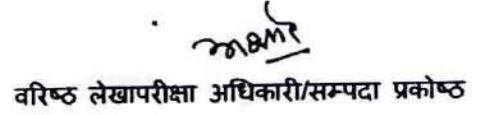 वरिष्ठ लेखापरीक्षा अधिकारी/सम्पदा प्रकोष्ठ